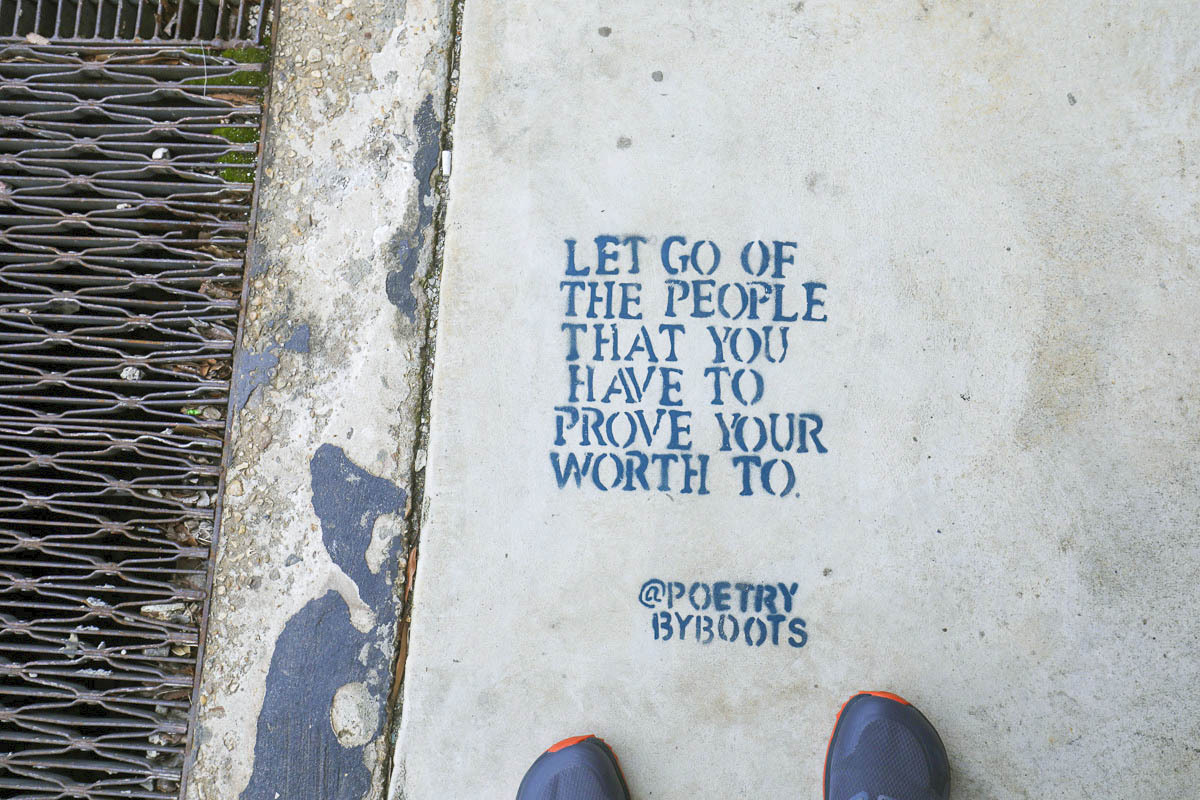 LET GO OF
THE PEOPLE
THAT YOU
HAVE TO
PROVE YOUR
WORTH TO.
@POETRY
BYBOOTS